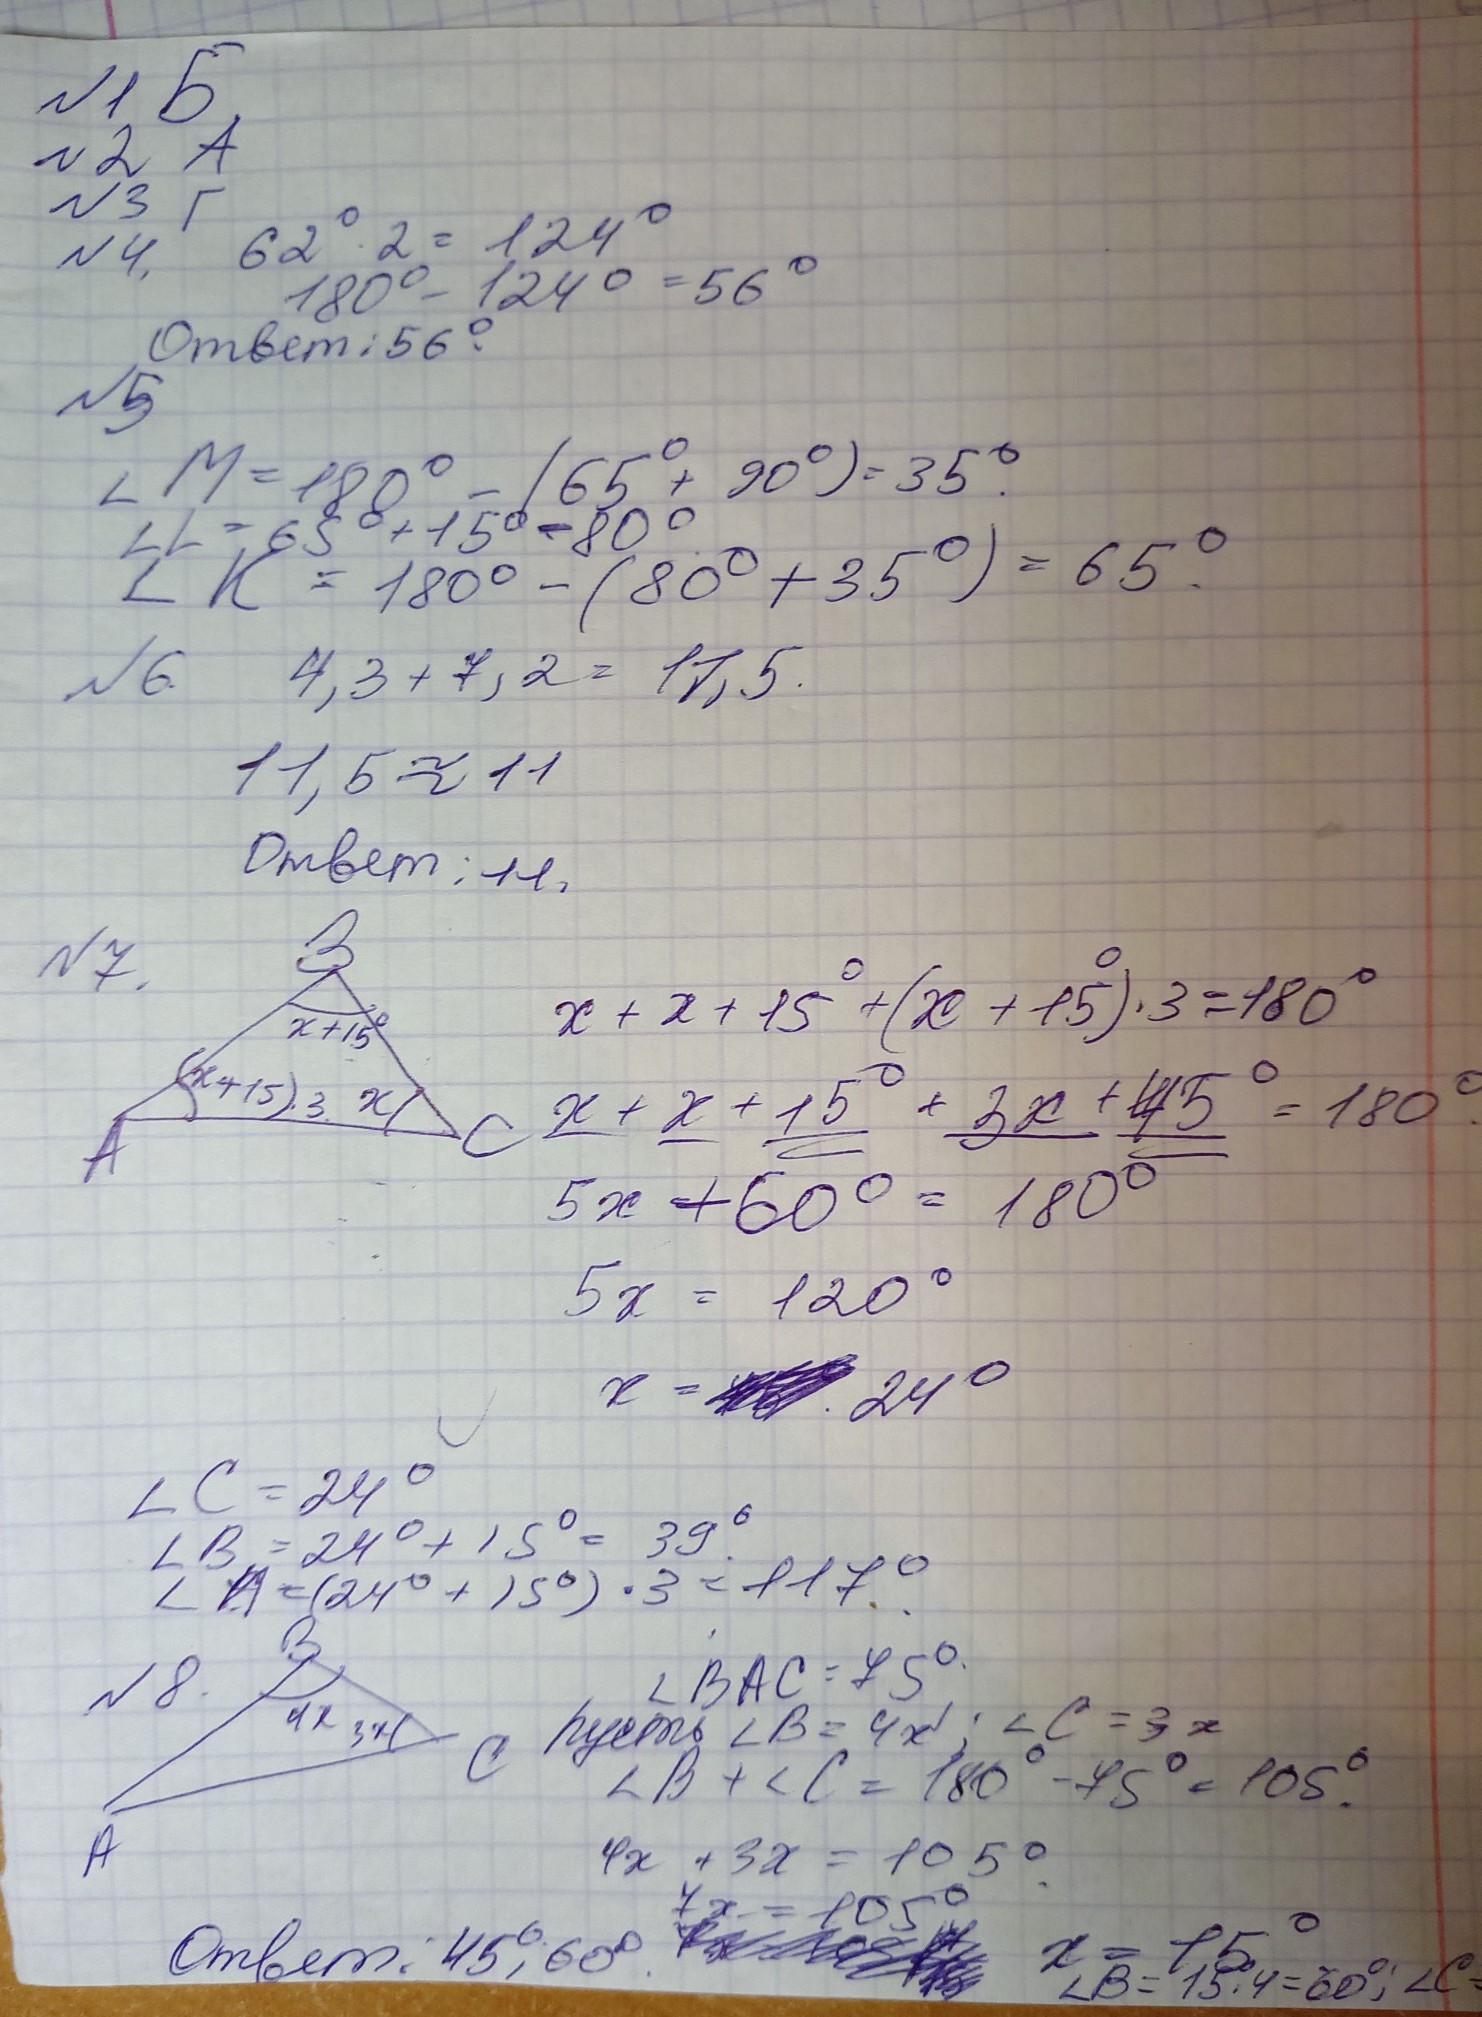 №1 Б.
№2 А
№3 Г
№4. 62°·2=124°
180°-124°=56°
Ответ: 56°.
№5
∠M=180°-(65°+90°)=35°.
∠L=65°+15°=80°.
∠K=180°-(80°+35°)=65°.
№6. 4,3+7,2=11,5.
11,5≈11
Ответ: 11.
№7.
B
x+15°
(x+15)·3 x
A C
x+x+15°+(x+15°)·3=180°
x+x+15°+3x+45°=180°.
5x+60°=180°
5x=120°
x= 24°
∠C=24°
∠B=24°+15°=39°.
∠A=(24°+15°)·3=117°.
№8.
B
4x 3x
C
A
∠BAC=75°.
Пусть ∠B=4x; ∠C=3x
∠B+∠C=180°-75°=105°.
4x+3x=105°.
7x=105°
x=15°
∠B=15·4=60°; ∠C=
Ответ: 45°; 60°.